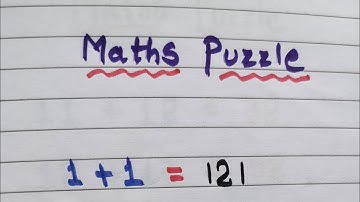 Maths Puzzle
1 + 1 = 121